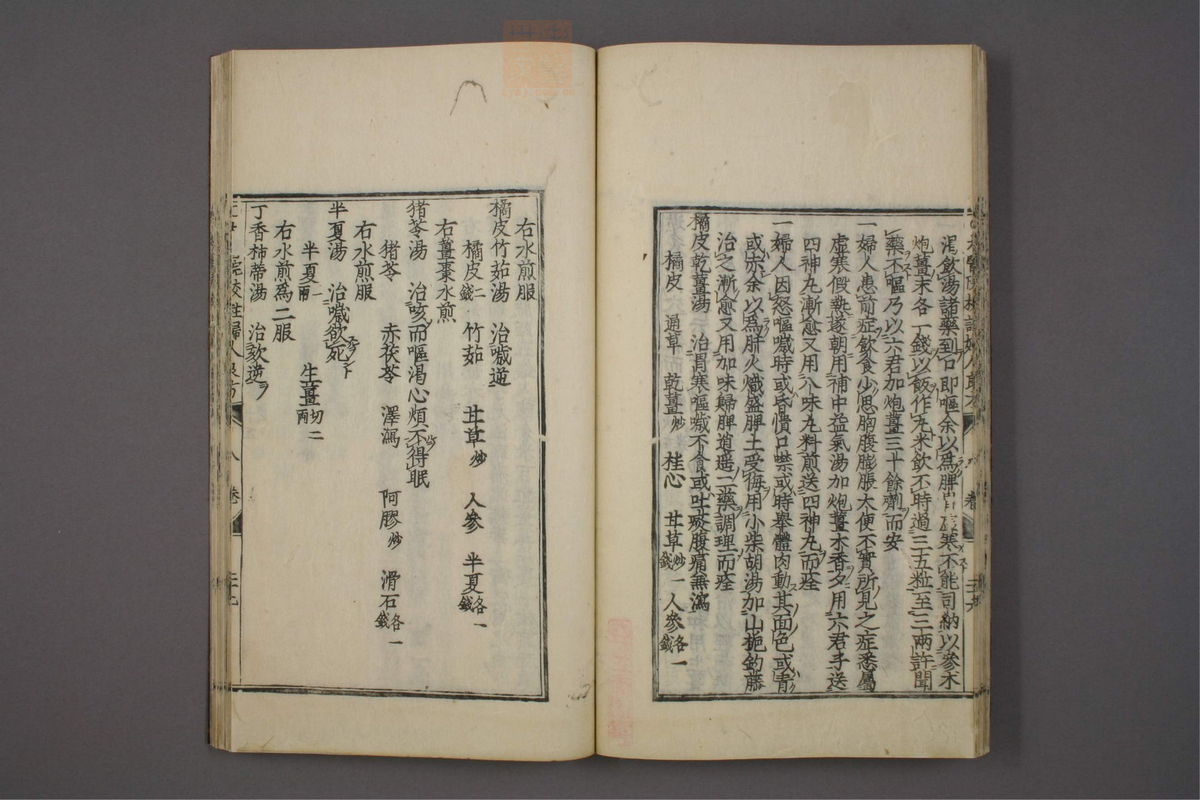 渴飲湯諸藥到口即嘔余以爲脾胃虛寒不能司納以參术
炮薑末各一錢以飯作丸米飲不時過三五粒至三兩許聞
藥不嘔乃以六君加炮薑三十餘劑而安
一婦人患前症飲食少思胸腹膨脹大便不實所見之症悉屬
虛寒假熱遂朝用補中益氣湯加炮薑木香夕用六君子送
四神丸漸愈又用八味丸料煎送四神丸而痊
一婦人因怒嘔噦時或昏憒口噤或時舉體肉動其面色或青
或赤余以爲肝火熾盛脾土受侮用小柴胡湯加山梔鈎藤
治之漸愈又用加味歸脾逍遙二藥調理而痊
橘皮乾薑湯 治胃寒嘔噦不食或吐痰腹痛兼瀉
橘皮 通草 乾薑炒 桂心 甘草炒一錢 人參各一錢
右水煎服
橘皮竹茹湯 治噦逆
橘皮二錢 竹茹 甘草炒 人參 半夏各一錢
右薑棗水煎
猪苓湯 治咳而嘔渴心煩不得眠
猪苓 赤茯苓 澤瀉 阿膠炒 滑石各一錢
右水煎服
半夏湯 治噦欲死
半夏一兩 生薑切二兩
右水煎爲二服
丁香柿蒂湯 治欬逆
校註婦人良方 八卷